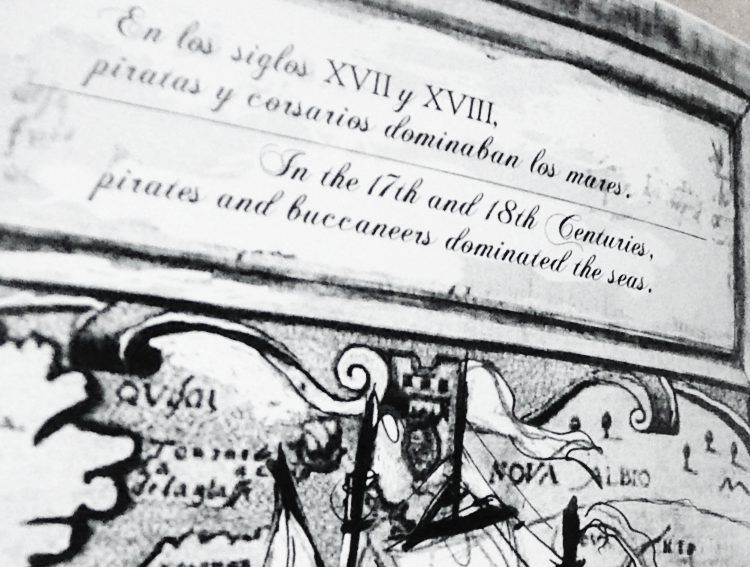 En los siglos XVII y XVIII,
piratas y corsarios dominaban los mares.
In the 17th and 18th Centuries,
pirates and buccaneers dominated the seas.
NOVA ALBIO